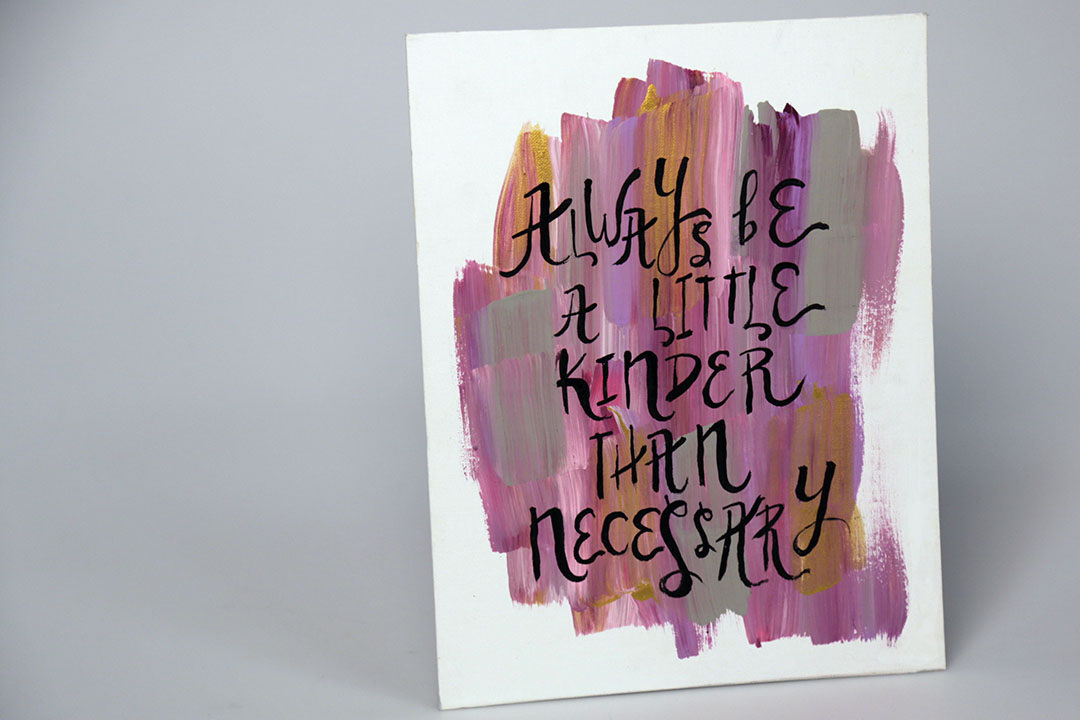 ALWAYS bE
A LITTLE
KINDER
THAN
NECESSARY